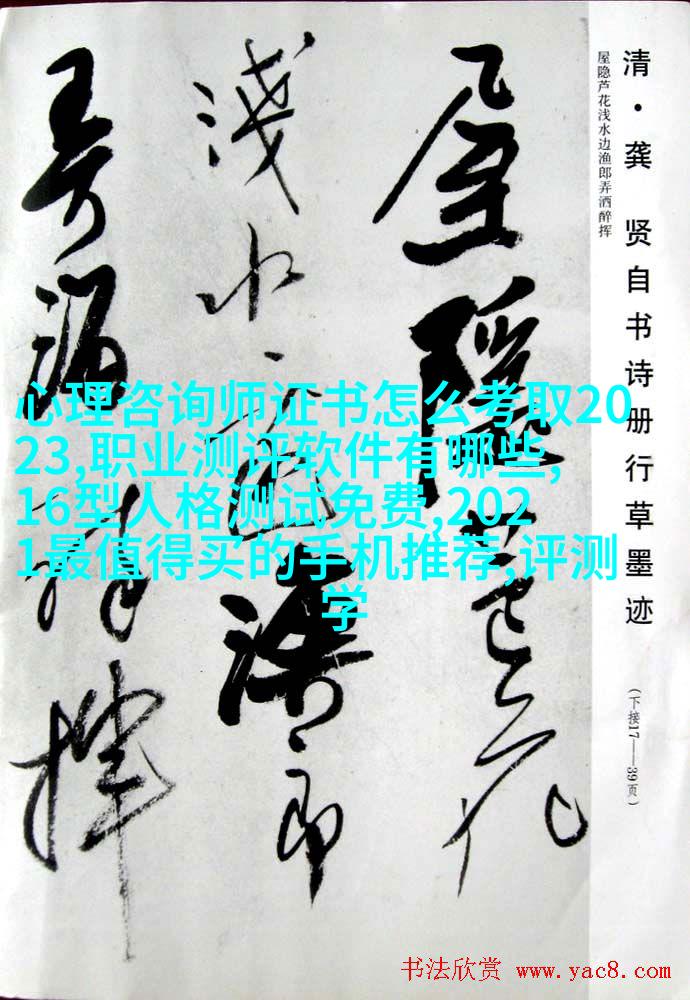 清·龚 贤自书诗册行草墨迹
(下接17——39页)
屋隐芦花浅水边渔郎弄洒醉挥
屋隱蘆花
淺水邊漁郎
弄酒醉揮
心理咨询师证书怎么考取20
23,职业测评软件有哪些,
16型人格测试免费,202
1最值得买的手机推荐,评测
学
书法欣赏 www.yac8.com